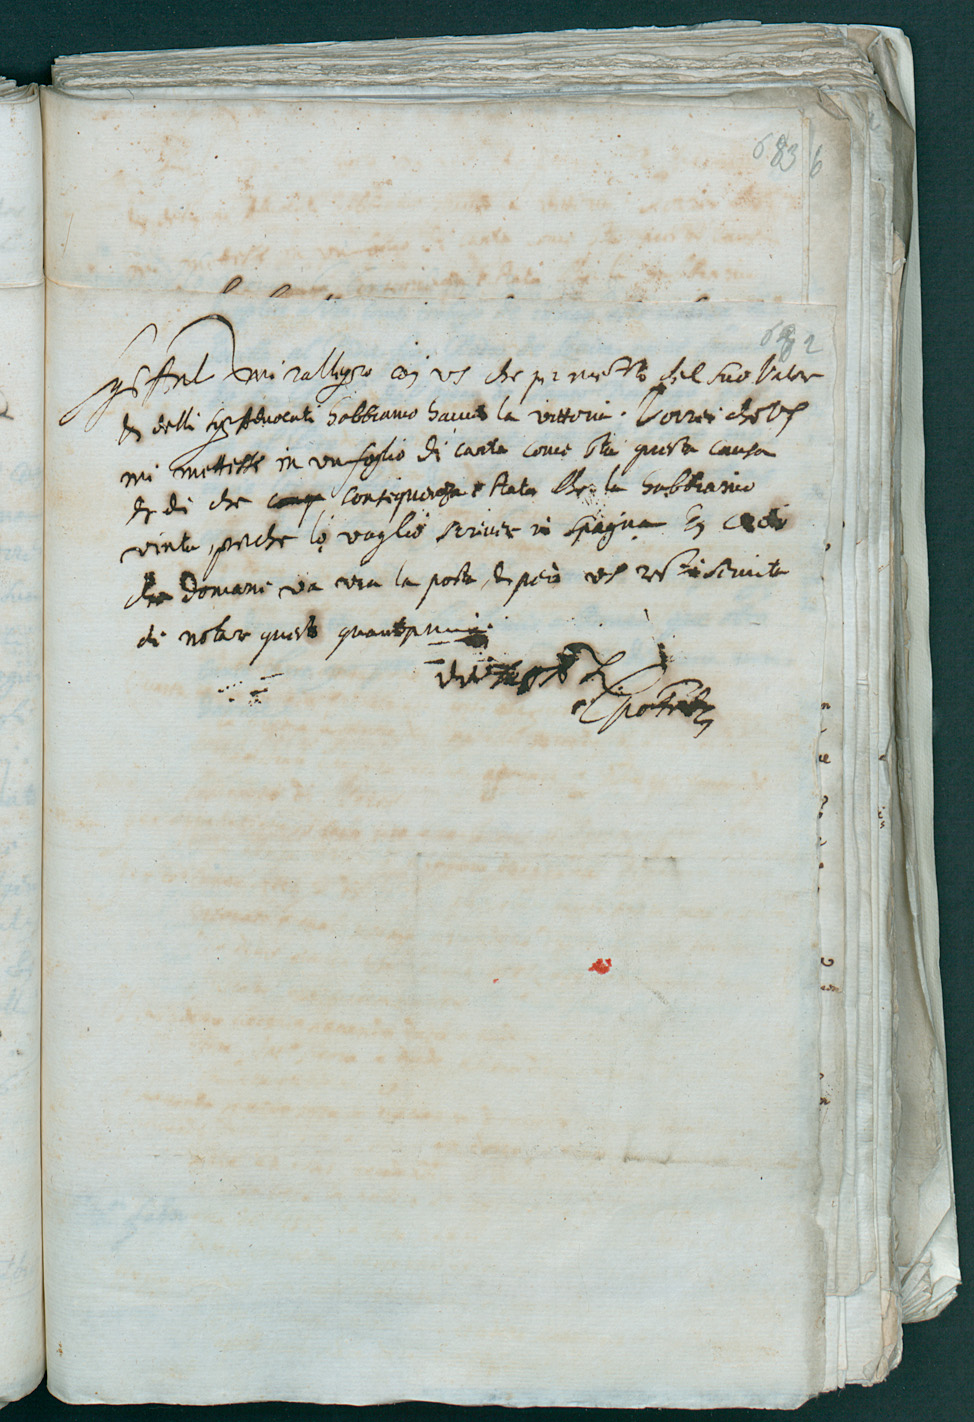 683 6
682
mi rallegro con vs che per mezzo del suo valor
& delli sig.ri Advocati habbiamo havuto la vittoria. Vorrei che vs
mi mettesse in un foglio di carta come sta questa causa
& di che consequenza e stata che la habbiamo
vinta, perche lo voglio scriver in Spagna
che domani va via la posta, & pero vs resti servita
di notar questo quantoprima.